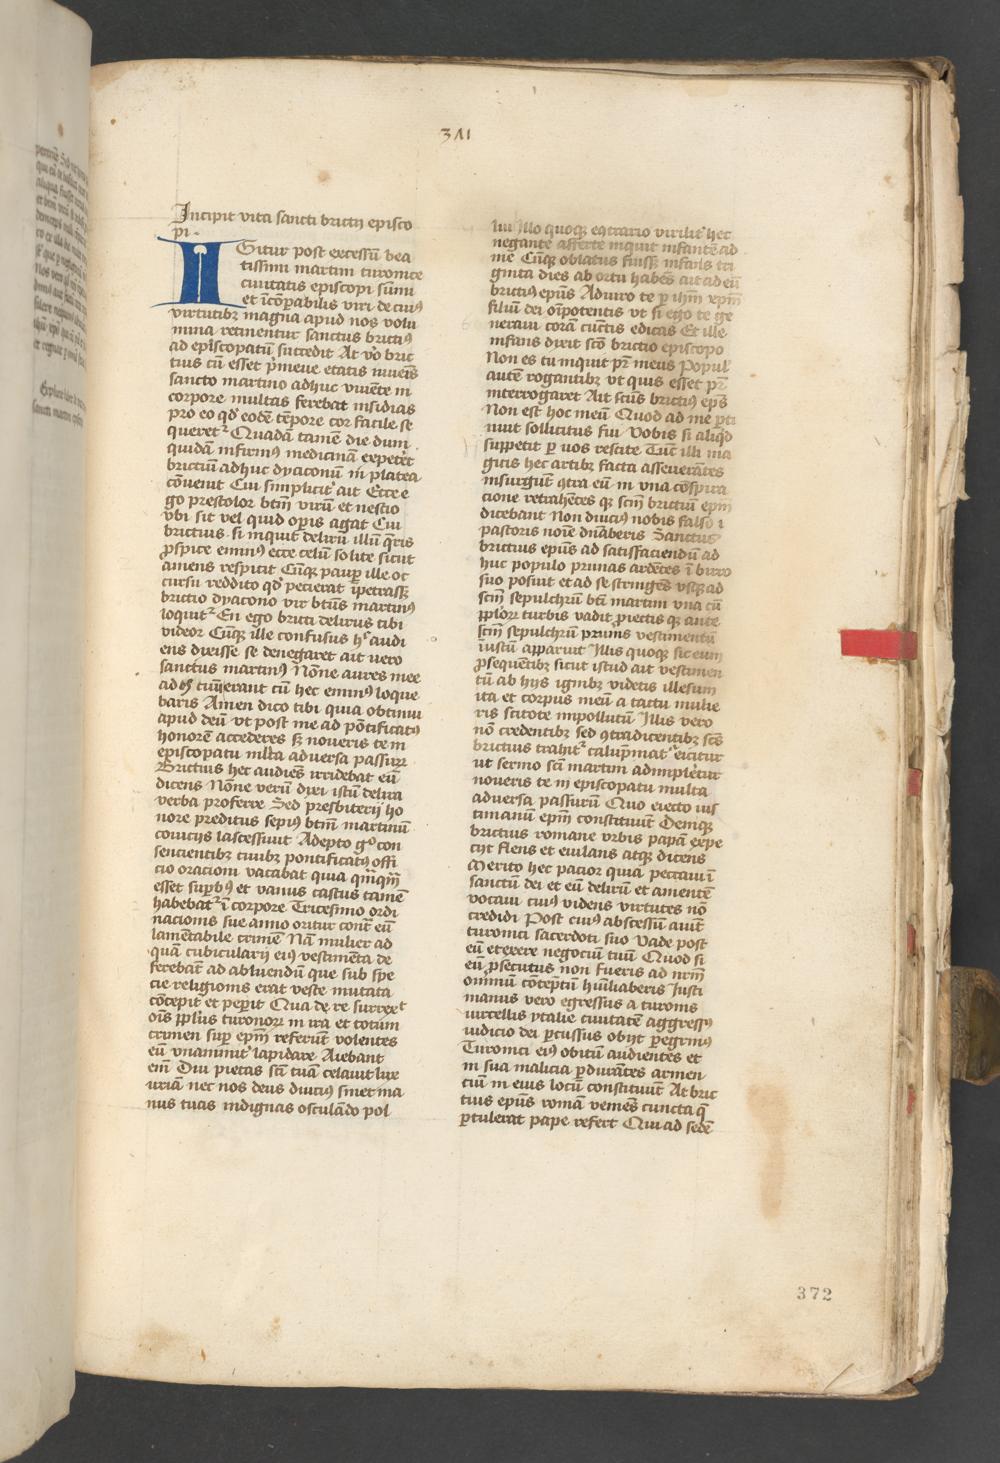 3Λ1
Incipit vita sancti brictii episco
pi .
IGitur post excessū bea
tissimi martini turonice
ciuitatis episcopi sūmi
et īcōpabilis viri de cuiꝰ
virtutibꝫ magna apud nos volu
mina retinentur sanctus brictiꝰ
ad ep̄iscopatū succedit At vo bric
tius cū esset p̄meue etatis iuueīs
sancto martino adhuc viuēte in
corpore multas ferebat insidias
pro eo qd̄ eodē tēpore cor facile se
queret᷑ Quadā tamē die dum
quidā infirmꝰ medicinā expeteret
brictiū adhuc dyaconū in platea
cōuenit Cui simplicit᷑ ait Ecce e
go prestolor btm̄ virū et nescio
vbi sit vel quid opis agat Cui
brictius. si inquit delirū illū q̄ris
ꝓspice eminꝰ ecce celū solite sicut
amens respicit Cūqꝫ paup ille oc
cursu reddito qd̄ pecierat īpetrassꝫ
brictio dyacono vir btūs martinꝰ
loquit᷑ En ego bricti delirus tibi
videor Cūqꝫ ille confusus hͦ audi
ens dixisse se denegaret ait vero
sanctus martinꝰ Nōne aures mee
ad os tuū erant cū hec eminꝰ loque
baris Amen dico tibi quia obtinui
apud deū vt post me ad pōtificatꝰ
honorē accederes sꝫ noueris te in
episcopatu mlta aduersa passurꝝ
Brictius hec audiēs irridebat eū
dicens Nōne verū dixi istū delira
verba proferre Sed presbiterij ho
nore preditus sepiꝰ btm̄ martinū
conuicijs lascessiuit Adepto gͦ con
sencientibꝫ ciuibꝫ pontificatꝰ offi
cio oracioni vacabat quia qm̄qm̄
esset supbꝰ et vanus castus tamē
habebat᷑ ī corpore Tricesimo ordi
nacionis sue anno oritur contᷓ eū
lamētabile crimē Nā mulier ad
quā cubicularij eiꝰ vestimēta de
ferebāt ad abluendū que sub spe
cie religionis erat veste mutata
cōcepit et pepit Qua de re surrex᷑t
oīs pplūs turonoꝝ in ira et totum
crimen sup epm̄ referūt volentes
eū vnanimit᷑ lapidare Aiebant
em̄ Diu pietas scī tuā celauit lux
uriā nec nos deus diuciꝰ sinet ma
nus tuas indignas osculādo pol
lui Illo quoqꝫ eꝯtrario virilit᷑ hec
negante afferte inquit infantē ad
me Cūqꝫ oblatus fuissꝫ infāīs tri
ginta dies ab ortu habēs ait ad eū
brictiꝰ ep̄us Adiuro te p ihm̄ xpm̄
filiū dei oīpotentis vt si ego te ge
neraui corā cūctis edicas Et ille
infans dixit scō brictio episcopo
Non es tu inquit pr̄ meus Popul᷑
autē rogantibꝫ vt quis esset pr̄
interrogaret Ait scūs brictiꝰ ep̄s
Non est hoc meū Quod ad me pti
nuit sollicitus fui Vobis si aliqd
suppetit p uos rescite Tūc illi ma
gicis hec artibꝫ facta asseuerātes
insurgūt ꝯtra eū in vna cōspira
cione retrahētes qꝫ scm̄ brictiū epm̄
dicebant Non diuciꝰ nobis falso ī
pastoris noīe dn̄aberis Sanctus
brictius ep̄us ad satisfaciendū ad
huc populo prunas ardētes ī birro
suo posuit et ad se stringēs vsqꝫ ad
scm̄ sepulchrū bti martini vna cū
pploꝝ turbis vadit ꝓiectis qꝫ ante
scm̄ sepulchrū prunis vestimentū
īustū apparuit Illis quoqꝫ sic eum
ꝓsequētibꝫ sicut istud ait vestimen
tū ab hijs ignibꝫ videtis illesum
ita et corpus meū a tactu mulie
ris scitote inpollutū Illis vero
nō credentibꝫ sed ꝯtradicentibꝫ scūs
brictius trahit᷑ calūpniat᷑ eicitur
ut sermo scī martini adimpletur
noueris te in episcopatu multa
aduersa passurū Quo eiecto ius
tinianū epm̄ constituūt Deniqꝫ
brictius romane vrbis papā expe
cijt flens et eiulans atqꝫ dicens
Merito hec pacior quia peccaui ī
sanctū dei et eū delirū et amentē
vocaui cuiꝰ videns virtutes nō
credidi Post cuiꝰ abscessū aiūt
turonici sacerdoti suo Vade post
eū et exere negociū tuū Quod si
eū ꝓsecutus non fueris ad nrm̄
omniū cōtēptū hūiliaberis Iusti
nianus vero egressus a turonis
vircellis ytalie ciuitatē aggressꝰ
iudicio dei pcussus obijt pegrinꝰ
Turonici eiꝰ obitū audientes et
in sua malicia pdurātes armen
tiū in eius locū constituūt At bric
tius ep̄us romā veniēs cuncta q̄
ptulerat pape refert Qui ad sedē
372